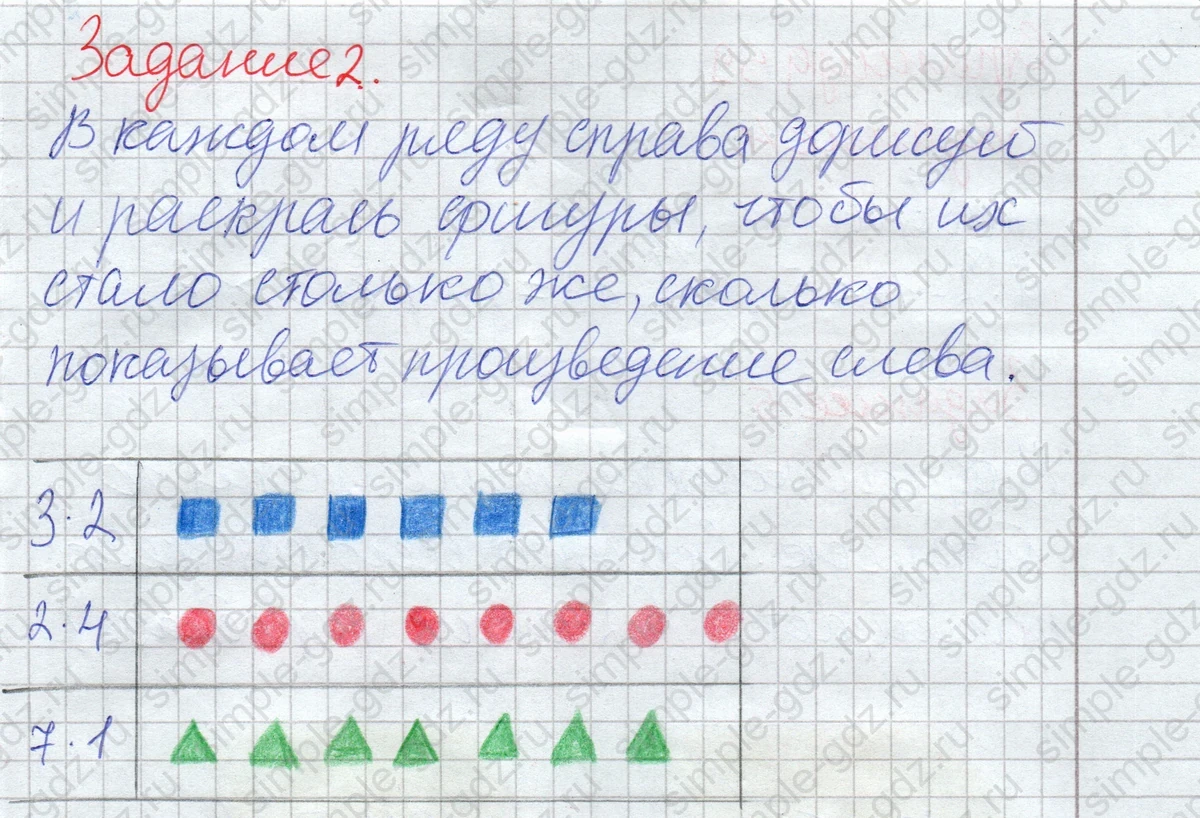 Задание 2.
В каждом ряду справа дорисуй
и раскрась фигуры, чтобы их
стало столько же, сколько
показывает произведение слева.
3·2
2·4
7·1
simple-gdz.ru